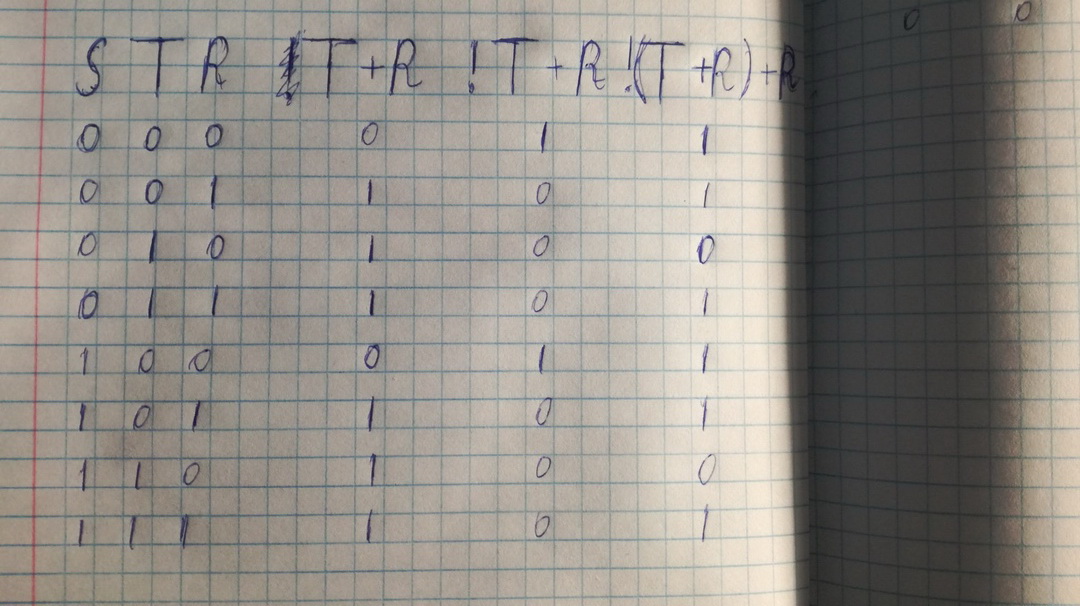 S T R T+R !T+R !(T+R)+R
0 0 0 0 1 1
0 0 1 1 0 1
0 1 0 1 0 0
0 1 1 1 0 1
1 0 0 0 1 1
1 0 1 1 0 1
1 1 0 1 0 0
1 1 1 1 0 1
0 0